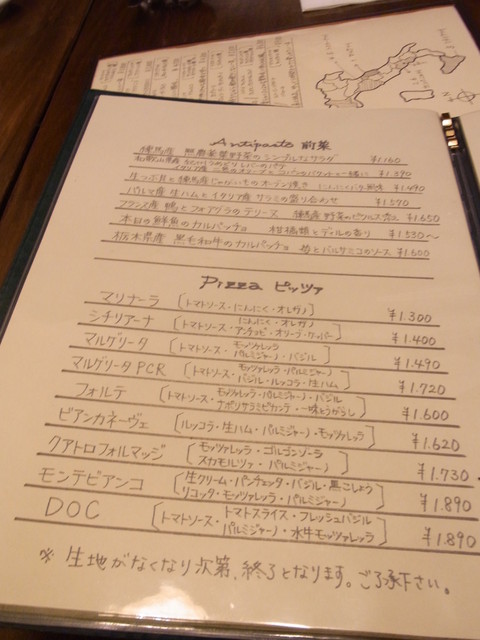 Antipasto 前菜
練馬産 無農薬葉野菜のシンプルなサラダ ¥1.160
生つぶ貝と練馬産じゃがいものオーブン焼き にんにくバター風味 ¥1.490
パルマ産 生ハムとイタリア産 サラミの盛り合わせ ¥1.570
フランス産 鴨とフォアグラのテリーヌ 練馬産 野菜のピクルス添え ¥1.650
本日の鮮魚のカルパッチョ 柑橘類とディルの香り 1.530~
栃木県産 黒毛和牛のカルパッチョ 苺とバルサミコのソース ¥1.600
Pizza ピッツァ
マリナーラ [トマトソース・にんにく・オレガノ] ¥1.300
シチリアーナ [にんにく・オレガノ
トマトソース・アンチョビ・オリーブ・ケッパー] ¥1.400
マルゲリータ [モッツァレッラ
トマトソース・パルミジャーノ・バジル] ¥1.490
マルゲリータPCR [モッツァレッラ・パルミジャーノ
トマトソース・バジル・ルッコラ・生ハム] ¥1.720
フォルテ [モッツァレッラ・パルミジャーノ・バジル
トマトソース・ナポリサラミピカンテ・一味とうがらし] ¥1.600
ビアンカネーヴェ [ルッコラ・生ハム・パルミジャーノ・モッツァレッラ] ¥1.620
クアトロフォルマッジ [モッツァレッラ・ゴルゴンゾーラ
スカモルツァ・パルミジャーノ] ¥1.730
モンテビアンコ [生クリーム・パンチェッタ・バジル・黒こしょう
リコッタ・モッツァレッラ・パルミジャーノ] ¥1.890
DOC [トマトスライス・フレッシュバジル
トマトソース・パルミジャーノ・水牛モッツァレッラ] ¥1.890
※ 生地がなくなり次第、終了となります。ご了承下さい。